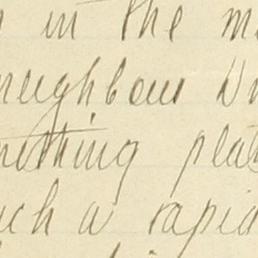 in the
neighbour
nothing plat
uch a rapid